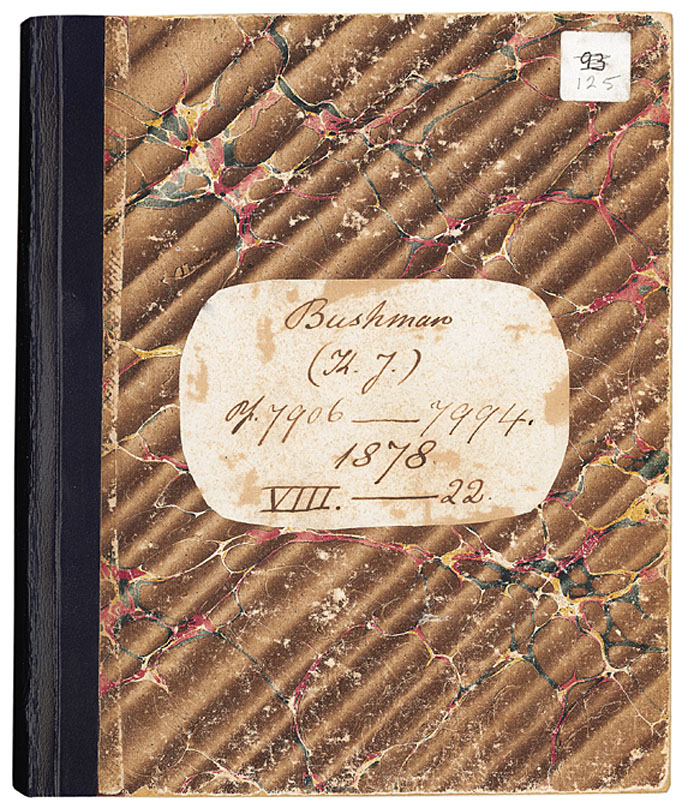 93
125
Bushman
(K. J.)
pp. 7906 — 7994.
1878.
VIII. — 22.